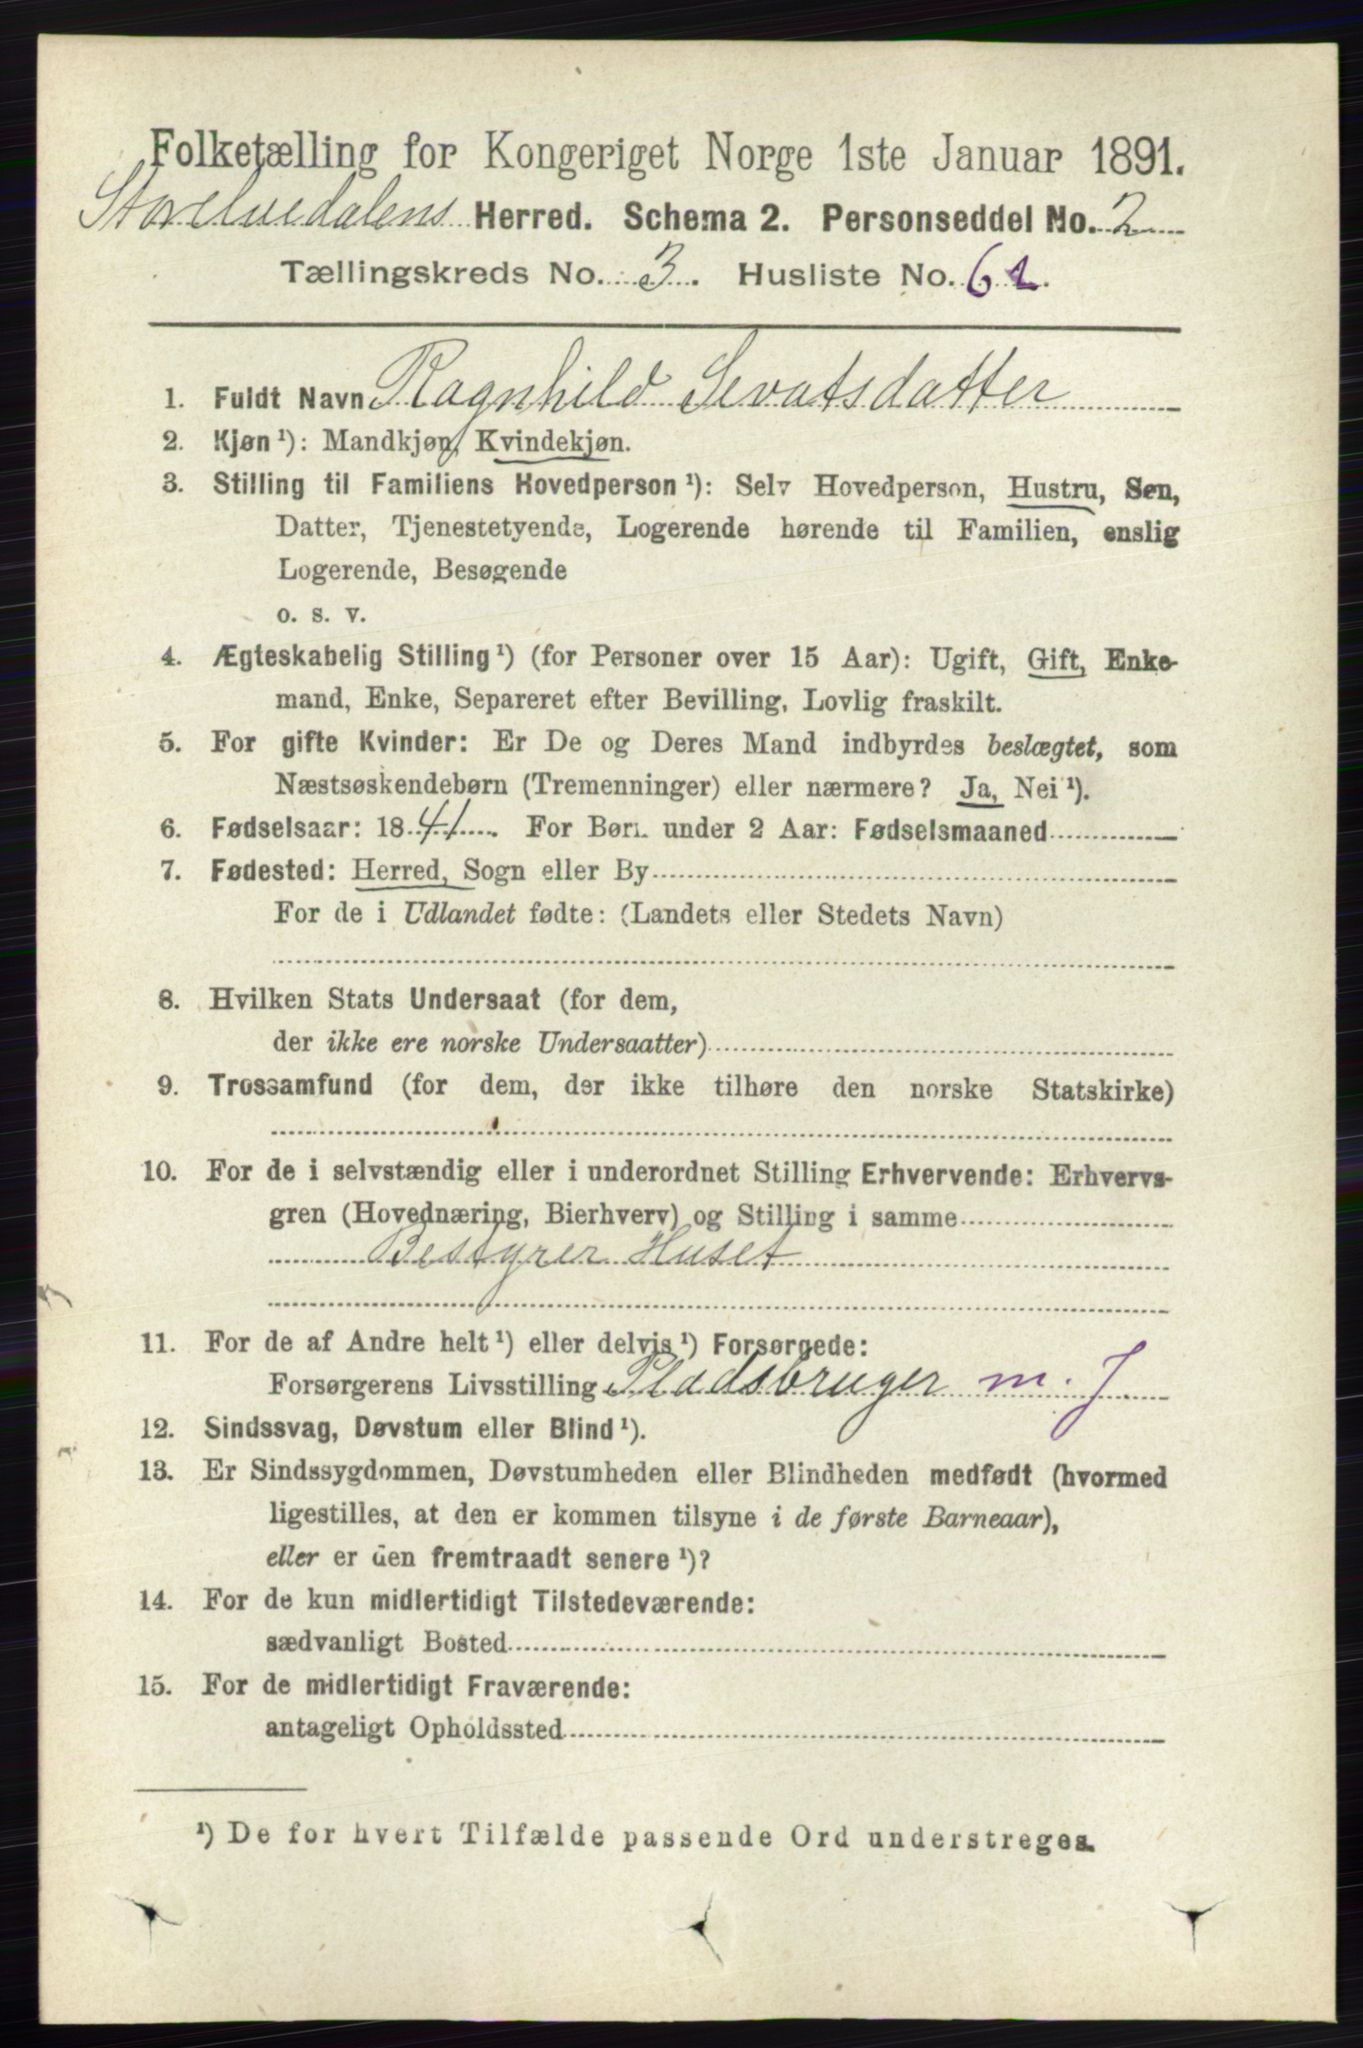 Folketælling for Kongeriget Norge 1ste Januar 1891.
Storelvedalens Herred. Schema 2. Personseddel No. 2
Tællingskreds No. 3. Husliste No. 61.
1. Fuldt Navn Ragnhild Sevatsdatter
2. Kjøn¹): Mandkjøn, Kvindekjøn.
3. Stilling til Familiens Hovedperson¹): Selv Hovedperson, Hustru, Søn,
Datter, Tjenestetyende, Logerende hørende til Familien, enslig
Logerende, Besøgende
o. s. v.
4. Ægteskabelig Stilling¹) (for Personer over 15 Aar): Ugift, Gift, Enke-
mand, Enke, Separeret efter Bevilling, Lovlig fraskilt.
5. For gifte Kvinder: Er De og Deres Mand indbyrdes beslægtet, som
Næstsøskendebørn (Tremenninger) eller nærmere? Ja, Nei¹).
6. Fødselsaar: 1841. For Børn under 2 Aar: Fødselsmaaned
7. Fødested: Herred, Sogn eller By
For de i Udlandet fødte: (Landets eller Stedets Navn)
8. Hvilken Stats Undersaat (for dem,
der ikke ere norske Undersaatter)
9. Trossamfund (for dem, der ikke tilhøre den norske Statskirke)
10. For de i selvstændig eller i underordnet Stilling Erhvervende: Erhvervs-
gren (Hovednæring, Bierhverv) og Stilling i samme
Bestyrer Huset
11. For de af Andre helt¹) eller delvis¹) Forsørgede:
Forsørgerens Livsstilling Pladsbruger m. J.
12. Sindssvag, Døvstum eller Blind¹).
13. Er Sindssygdommen, Døvstumheden eller Blindheden medfødt (hvormed
ligestilles, at den er kommen tilsyne i de første Barneaar),
eller er den fremtraadt senere¹)?
14. For de kun midlertidigt Tilstedeværende:
sædvanligt Bosted
15. For de midlertidigt Fraværende:
antageligt Opholdssted
¹) De for hvert Tilfælde passende Ord understreges.